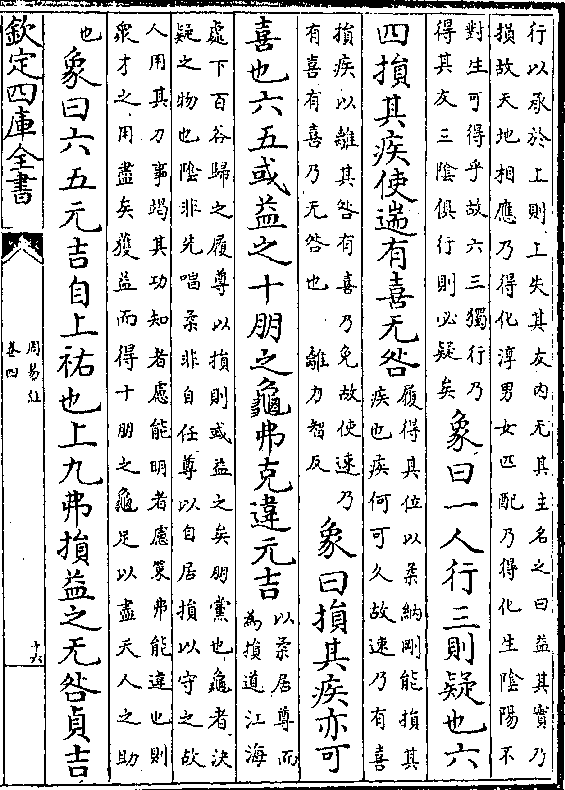 行以承於上則上失其友內无其主名之曰益其實乃
損故天地相應乃得化淳男女匹配乃得化生陰陽不
對生可得乎故六三獨行乃
得其友三陰俱行則必疑矣
象曰一人行三則疑也六
四損其疾使遄有喜无咎
履得其位以柔納剛能損其
疾也疾何可久故速乃有喜
損疾以離其咎有喜乃免故使速乃
有喜有喜乃无咎也　離力智反
象曰損其疾亦可
喜也六五或益之十朋之龜弗克違元吉
以柔居尊而
為損道江海
處下百谷歸之履尊以損則或益之矣朋黨也龜者決
疑之物也陰非先唱柔非自任尊以自居損以守之故
人用其力事竭其功知者慮能明者慮策弗能違也則
衆才之用盡矣獲益而得十朋之龜足以盡天人之助
也
象曰六五元吉自上祐也上九弗損益之无咎貞吉
欽定四庫全書
周易注
卷四
十六